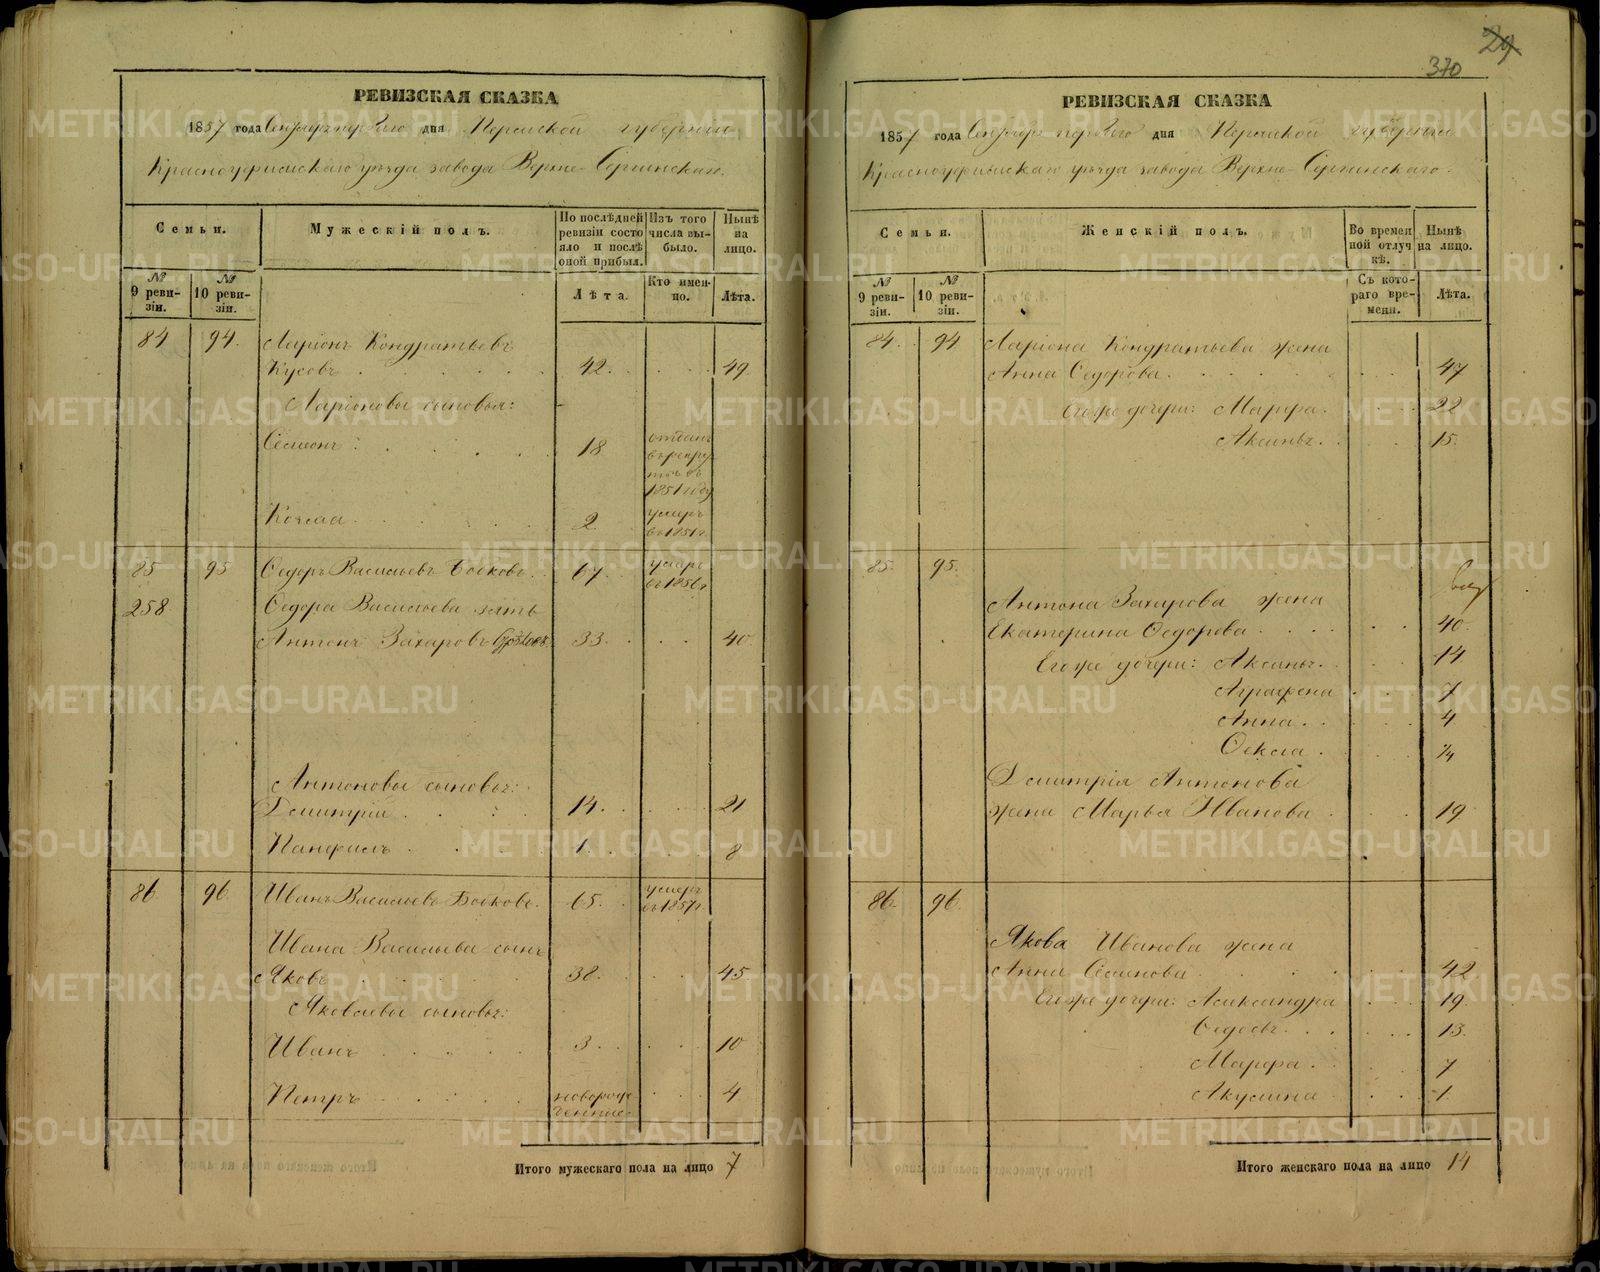 29
370
РЕВИЗСКАЯ СКАЗКА
1857 года Сентября первого дня Пермской губернии
Красноуфимскаго уѣзда завода Верхне-Сергинскаго.
Семьи.
Мужескій полъ.
По послѣдней ревизіи состояло и послѣ оной прибыл.
Изъ того числа выбыло.
Нынѣ на лицо.
№ 9 ревизіи.
№ 10 ревизіи.
Лѣта.
Кто именно.
Лѣта.
84 94. Ларіонъ Кондратьевъ
Кусовъ 42. 49
Ларіоновы сыновья:
Семенъ 18 отданъ въ рекруты въ 1851 году
Козма 2 умеръ въ 1851 г
85 95 Федоръ Васильевъ Бобковъ 67. умеръ въ 1856 г
258 Федора Васильева зять
Антонъ Захаровъ 33. 40
Антоновы сыновья:
Дмитрій 14. 21
Панфилъ 1. 8
86 96 Иванъ Васильевъ Бобковъ. 65. умеръ въ 1857 г
Ивана Васильева сынъ
Яковъ 38. 45
Яковлевы сыновья:
Иванъ 3. 10
Петръ новорожденные 4
Итого мужескаго пола на лицо 7
РЕВИЗСКАЯ СКАЗКА
1857 года Сентября первого дня Пермской губернии
Красноуфимскаго уѣзда завода Верхне-Сергинскаго.
Семьи.
Женскій полъ.
Во временной отлучкѣ.
Нынѣ на лицо.
№ 9 ревизіи.
№ 10 ревизіи.
Съ котораго времени.
Лѣта.
84. 94 Ларіона Кондратьева жена
Анна Федорова. 47
Его же дочери: Марфа. 22
Аксинья. 15.
85. 95.
Антона Захарова жена
Екатерина Федорова 40.
Его же дочери: Аксинья. 14
Аграфена 7
Анна. 4
Фекла. ¼
Дмитрія Антонова
жена Марья Иванова 19.
86. 96.
Якова Иванова жена
Анна Семенова 42
Его же дочери: Александра 19.
Федосья. 13.
Марфа. 7
Акулина 1
Итого женскаго пола на лицо 14
METRIKI.GASO-URAL.RU